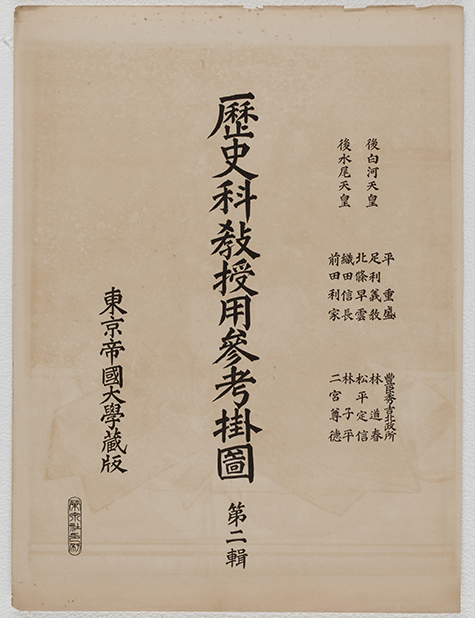 後白河天皇
後水尾天皇
平重盛
足利義教
北條早雲
織田信長
前田利家
豐臣秀吉北政所
林道春
松平定信
林子平
二宮尊德
歷史科教授用參考掛圖 第二輯
東京帝國大學藏版